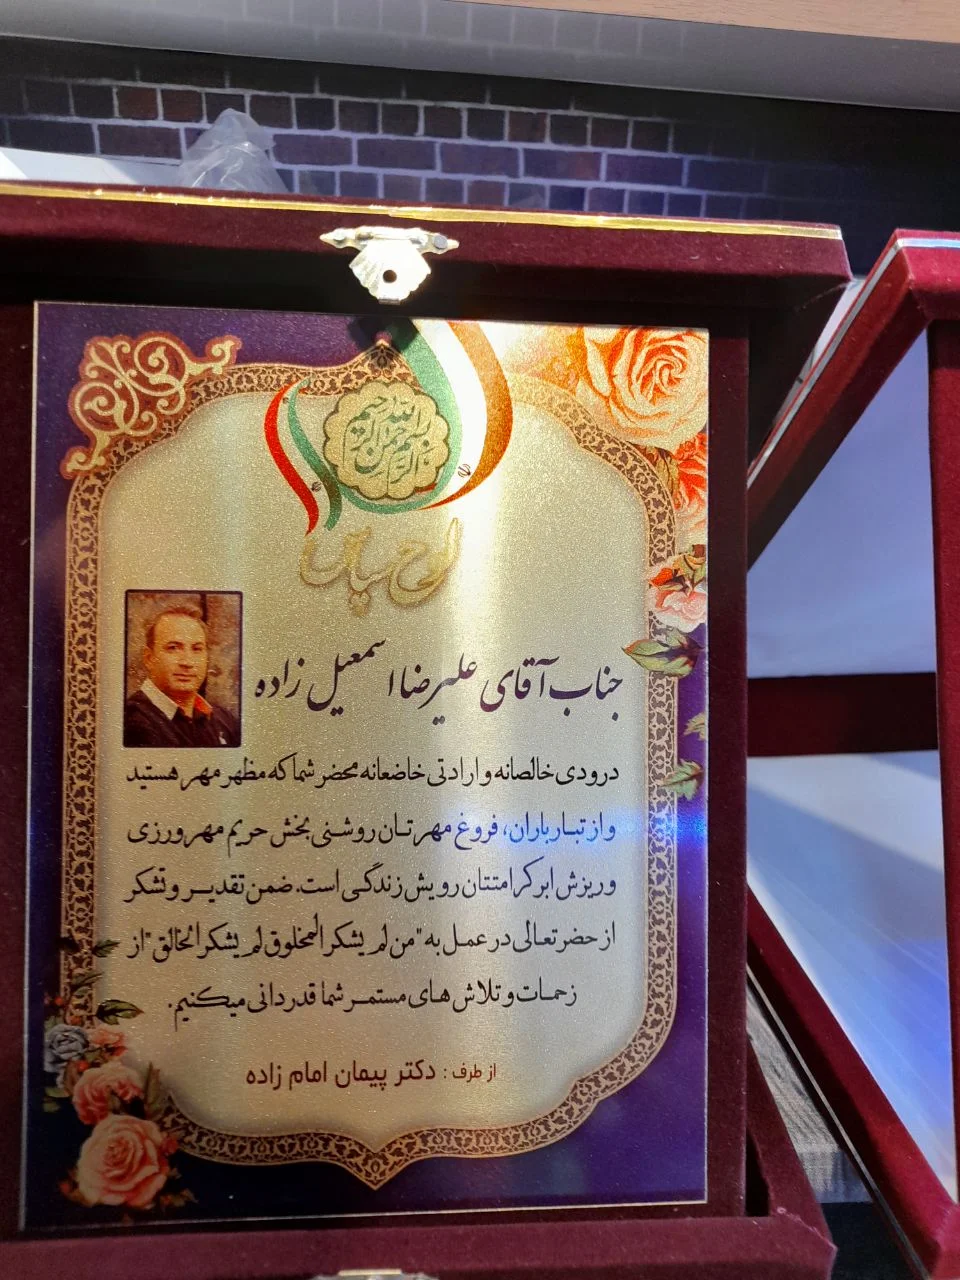 بسم الله الرحمن الرحیم
لوح سپاس
جناب آقای علیرضا اسمعیل زاده
درودی خالصانه و ارادتی خاضعانه محضر شما که مظهر مهر هستید
و از تبار باران، فروغ مهرتان روشنی بخش حریم مهرورزی
و ریزش ابر کرامتتان رویش زندگی است. ضمن تقدیر و تشکر
از حضرتعالی در عمل به "من لم یشکر المخلوق لم یشکر الخالق" از
زحمات و تلاش های مستمر شما قدردانی میکنیم.
از طرف : دکتر پیمان امام زاده